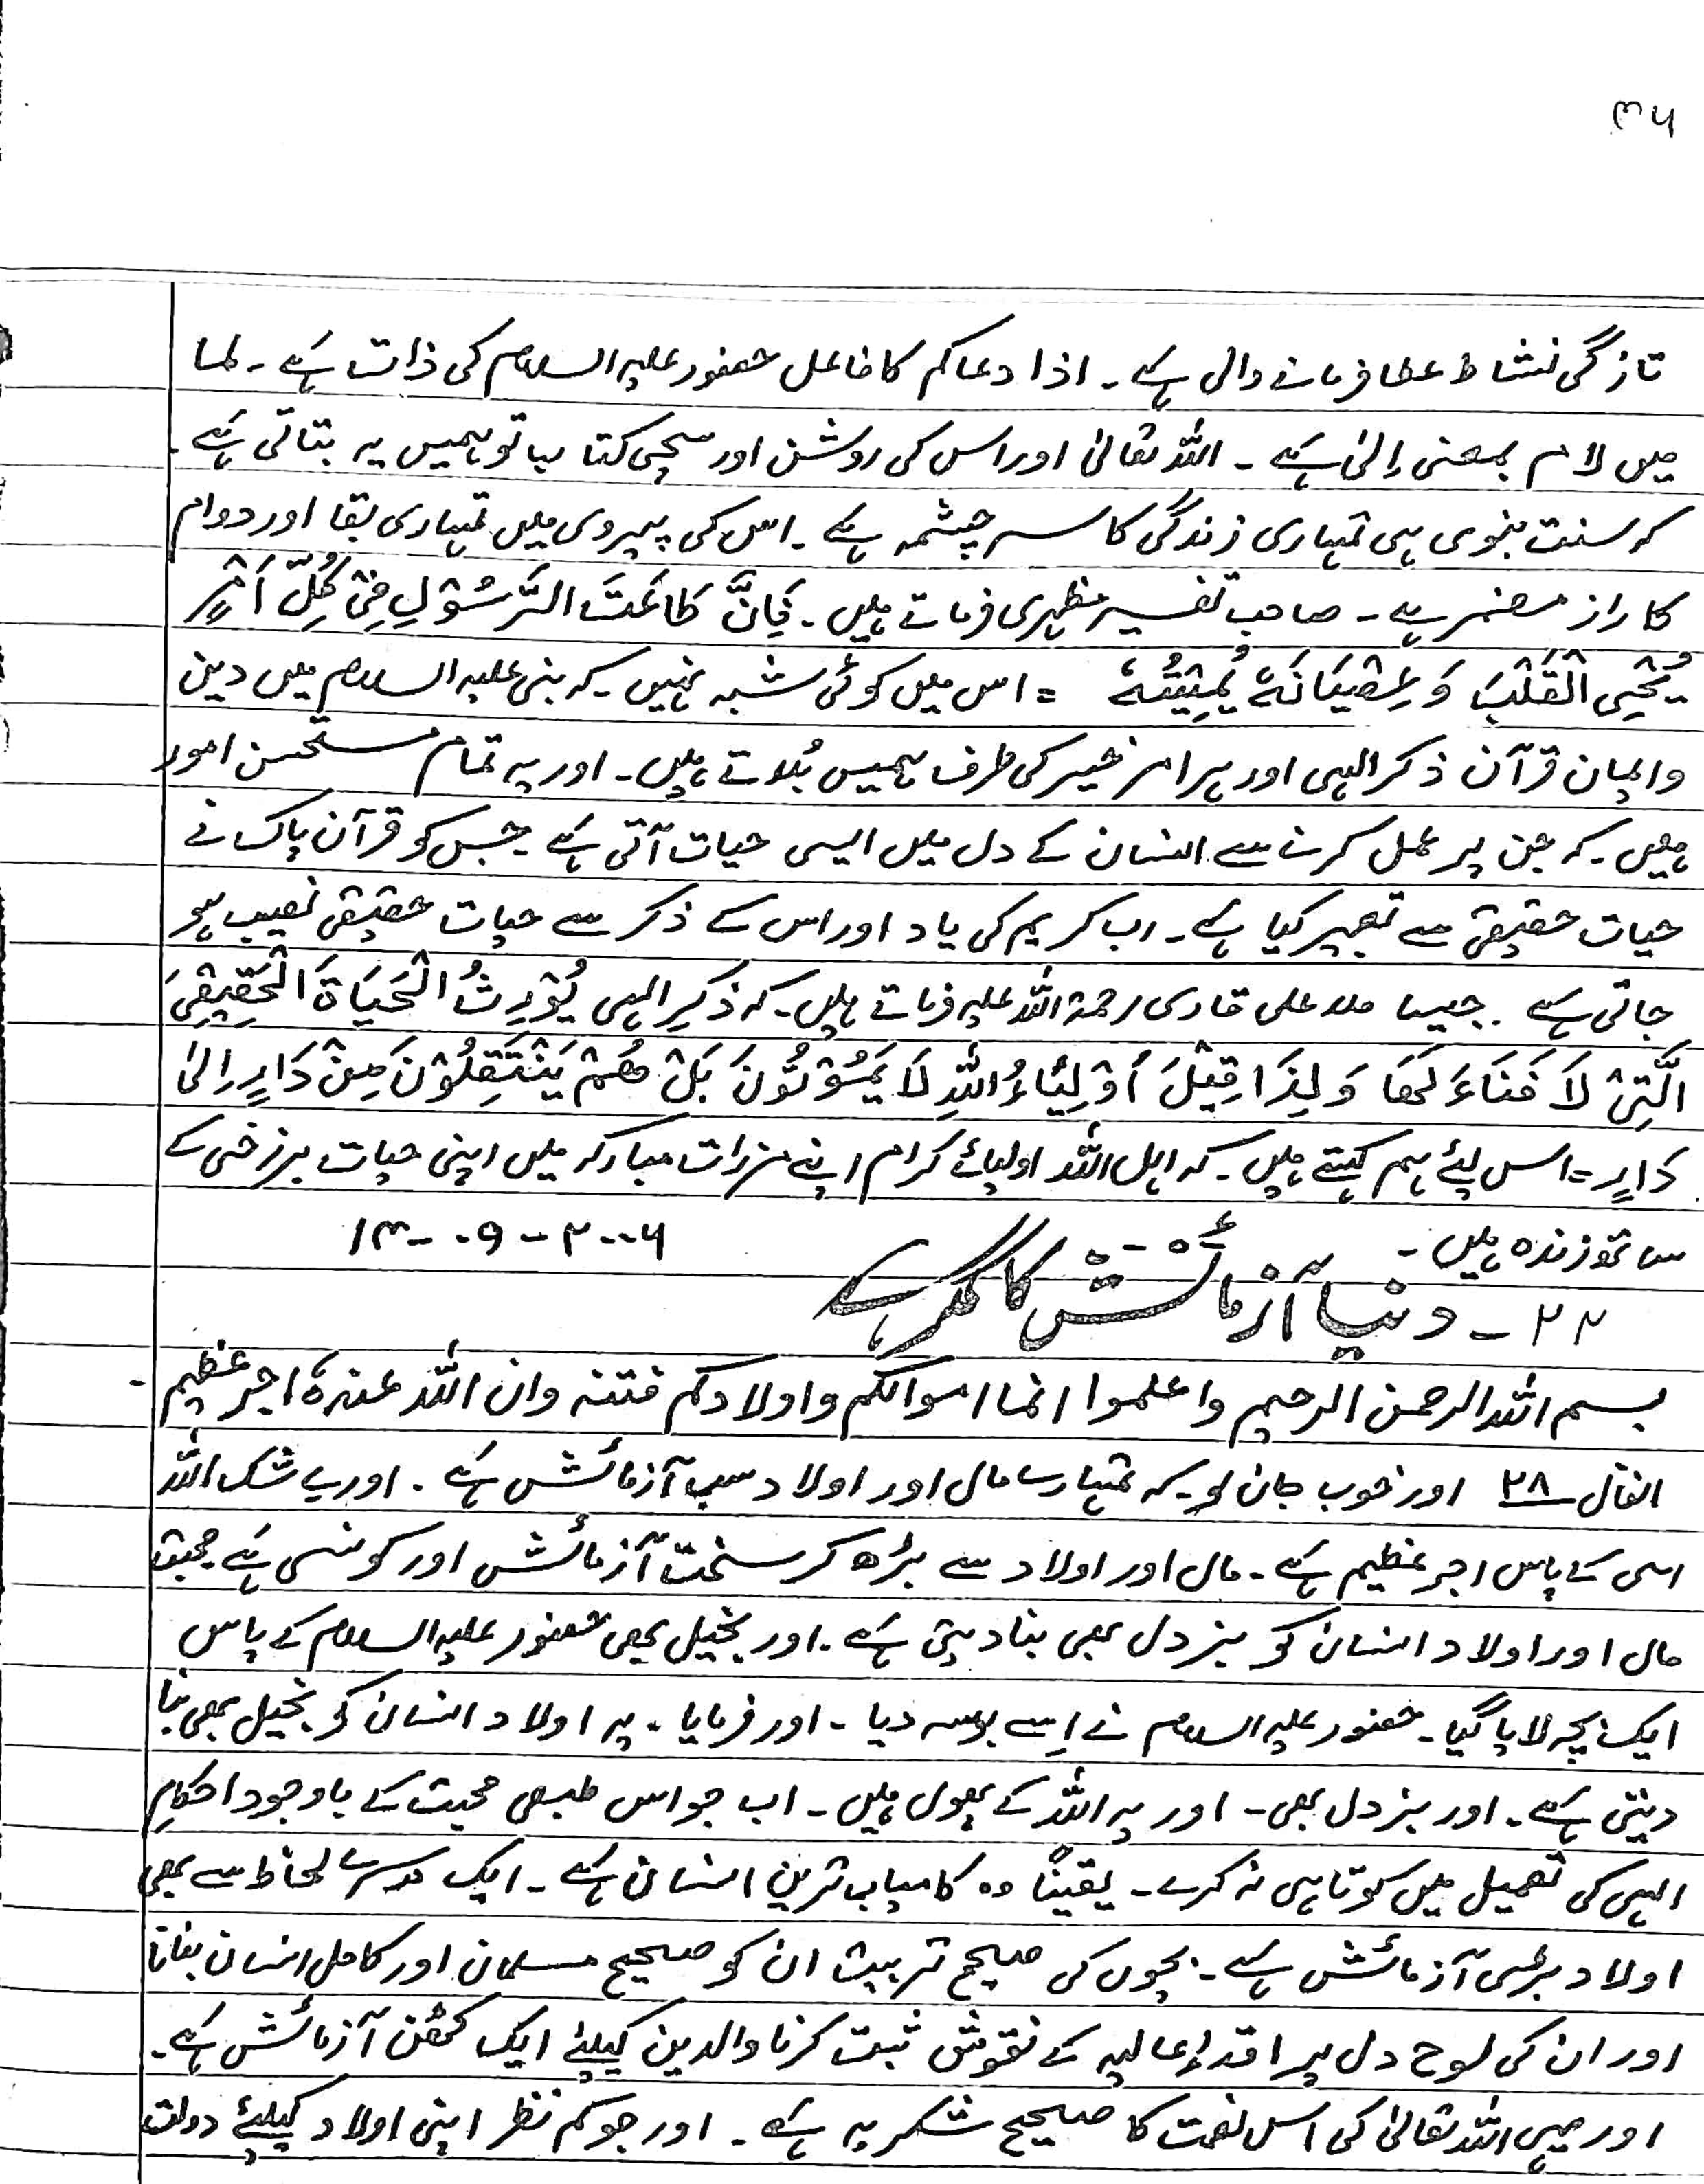 ۳۶
تازگی نشاط عطا فرمانے والی ہے۔ اذا دعاکم کا فاعل حضور علیہ السلام کی ذات ہے۔ لما
میں لام بمعنی اِلیٰ ہے۔ اللہ تعالیٰ اور اس کی روشن اور سچی کتاب تو ہمیں یہ بتاتی ہے۔
کہ سنت نبوی ہی تمہاری زندگی کا سرچشمہ ہے۔ اس کی پیروی میں تمہاری بقا اور دوام
کا راز مضمر ہے۔ صاحب تفسیر مظہری فرماتے ہیں۔ فَاِنَّ طَاعَتَ الرَّسُوْلِ فِیْ کُلِّ اَمْرٍ
یُحْیِی الْقَلْبَ وَ عِصْیَانَهٗ یُمِیْتُهٗ = اس میں کوئی شبہ نہیں۔ کہ نبی علیہ السلام میں دین
وایمان قرآن ذکر الہی اور ہر امر خیر کی طرف ہمیں بُلاتے ہیں۔ اور یہ تمام مستحسن امور
ہیں۔ کہ جن پر عمل کرنے سے انسان کے دل میں ایسی حیات آتی ہے۔ جس کو قرآن پاک نے
حیات حقیقی سے تعبیر کیا ہے۔ رب کریم کی یاد اور اس کے ذکر سے حیات حقیقی نصیب ہو
جاتی ہے۔ جیسا ملا علی قاری رحمۃ اللہ علیہ فرماتے ہیں۔ کہ ذکرِ الہی یُوْرِثُ الْحَیَاۃَ الْحَقِیْقِیَ
الَّتِیْ لَا فَنَاءَ لَھَا وَ لِذَا قِیْلَ اَوْلِیَاءُ اللّٰہِ لَا یَمُوْتُوْنَ بَلْ ھُمْ یَنْتَقِلُوْنَ مِنْ دَارٍ اِلیٰ
دَارٍ = اس لئے ہم کہتے ہیں۔ کہ اہل اللہ اولیائے کرام اپنے مزرات مبارکہ میں اپنی حیات برزخی کے
ساتھ زندہ ہیں۔ ۱۳-۰۹-۲۰۰۶
۲۲ ۔ دنیا آزمائش کا گھر ہے
بسم اللہ الرحمن الرحیم واعلموا انما اموالکم واولادکم فتنہ وان اللہ عندہٗ اجر عظیم۔
انفال ۲۸ اور خوب جان لو۔ کہ تمہارے مال اور اولاد سب آزمائش ہے۔ اور بے شک اللہ
اسی کے پاس اجر عظیم ہے۔ مال اور اولاد سے بڑھ کر سخت آزمائش اور کونسی ہے محبت
مال اور اولاد انسان کو بزدل بھی بنا دیتی ہے۔ اور بخیل بھی حضور علیہ السلام کے پاس
ایک بچہ لایا گیا۔ حضور علیہ السلام نے اِسے بوسہ دیا۔ اور فرمایا۔ یہ اولاد انسان کو بخیل بھی بنا
دیتی ہے۔ اور بزدل بھی۔ اور یہ اللہ کے پھول ہیں۔ اب جو اس طبعی محبت کے باوجود احکامِ
الہی کی تعمیل میں کوتاہی نہ کرے۔ یقیناً وہ کامیاب ترین انسان ہے۔ ایک دوسرے لحاظ سے بھی
اولاد بڑی آزمائش ہے۔ بچوں کی صحیح تربیت ان کو صحیح مسلمان اور کامل انسان بنانا
اور ان کی لوح دل پر اقدارِ عالیہ کے نقوش ثبت کرنا والدین کیلئے ایک کٹھن آزمائش ہے۔
اور یہی اللہ تعالیٰ کی اس نعمت کا صحیح شکریہ ہے۔ اور جو کم نظر اپنی اولاد کیلئے دولت